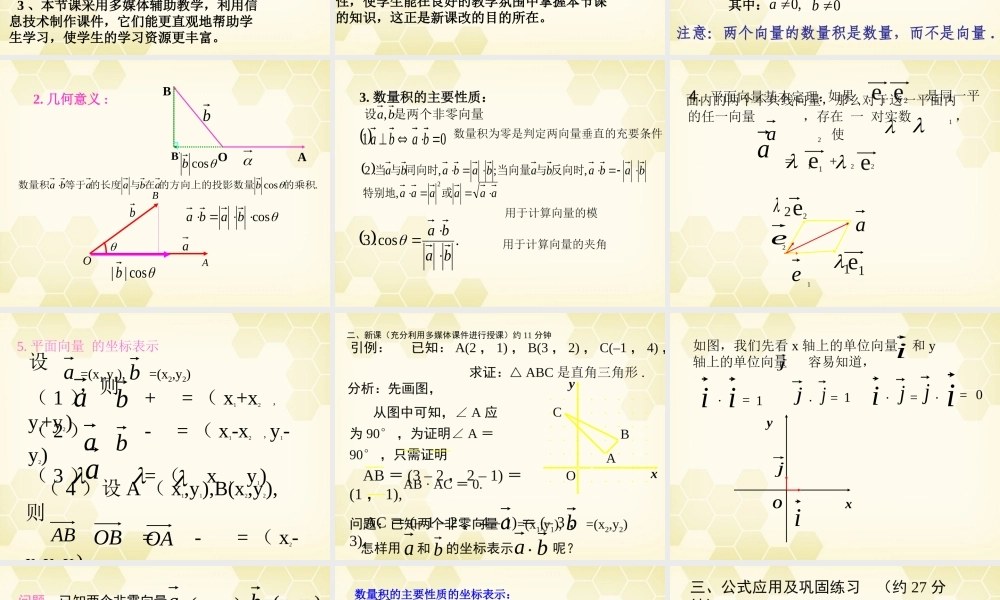 3 、本节课采用多媒体辅助教学，利用信
息技术制作课件，它们能更直观地帮助学
生学习，使学生的学习资源更丰富。
性，使学生能在良好的教学氛围中掌握本节课
的知识，这正是新课改的目的所在。
其中: a ≠0, b ≠0
注意：两个向量的数量积是数量，而不是向量 .
2. 几何意义 :
B
b
B O A
|b|cosθ α
数量积a·b等于a的长度|a|与b在a的方向上的投影数量|b|cosθ的乘积.
B
b
a·b=|a|·|b|·cosθ
θ a
O A
|b|cosθ
3. 数量积的主要性质：
设a,b是两个非零向量
(1) a⊥b⇔a·b=0 数量积为零是判定两向量垂直的充要条件
(2) 当a与b同向时,a·b=|a|·|b|;当向量a与b反向时,a·b=-|a|·|b|
特别地,a·a=|a|²或|a|=√a·a
用于计算向量的模
(3) cosθ= a·b / |a|·|b| .
用于计算向量的夹角
4. 平面向量基本定理: 如果 e₁ e₂ 是同一平
面内的两个不共线向量，那么对于这一平面内
的任一向量 a ，存在 一 对实数 λ₁ ， λ₂ 使
a = λ₁ e₁ + λ₂ e₂
λ₂e₂
e₂ a
e₁ λ₁e₁
5. 平面向量 的坐标表示
设 a =(x₁,y₁), b =(x₂,y₂) 则
（ 1 ） a + b = （ x₁+x₂ ，
y₁+y₂)
（ 2 ） a - b = （ x₁-x₂ ， y₁-
y₂)
（ 3 ） λa = （ λx λy)
（ 4 ）设 A （ x₁,y₁),B(x₂,y₂),
则
AB = OB - OA = （ x₂-
二、新课（充分利用多媒体课件进行授课）约 11 分钟
引例： 已知：A(2 ， 1) ， B(3 ， 2) ， C(–1 ， 4) ，
求证：△ ABC 是直角三角形 .
分析：先画图，
从图中可知，∠ A 应
为 90° ，为证明∠ A ＝
90° ，只需证明
AB · AC ＝ 0.
AB ＝ (3 – 2 ， 2 – 1) ＝
(1 ， 1),
3),
问题：已知两个非零向量 a =(x₁,y₁), b =(x₂,y₂)
怎样用 a 和 b 的坐标表示 a · b 呢？
y
C
B
A
O x
如图，我们先看 x 轴上的单位向量 i 和 y
轴上的单位向量 j 容易知道，
i · i ＝ 1 j · j ＝ 1 i · j ＝ j · i ＝ 0
y
j
O i x
问题：已知两个非零向量
数量积的主要性质的坐标表示：
三、公式应用及巩固练习 （约 27 分